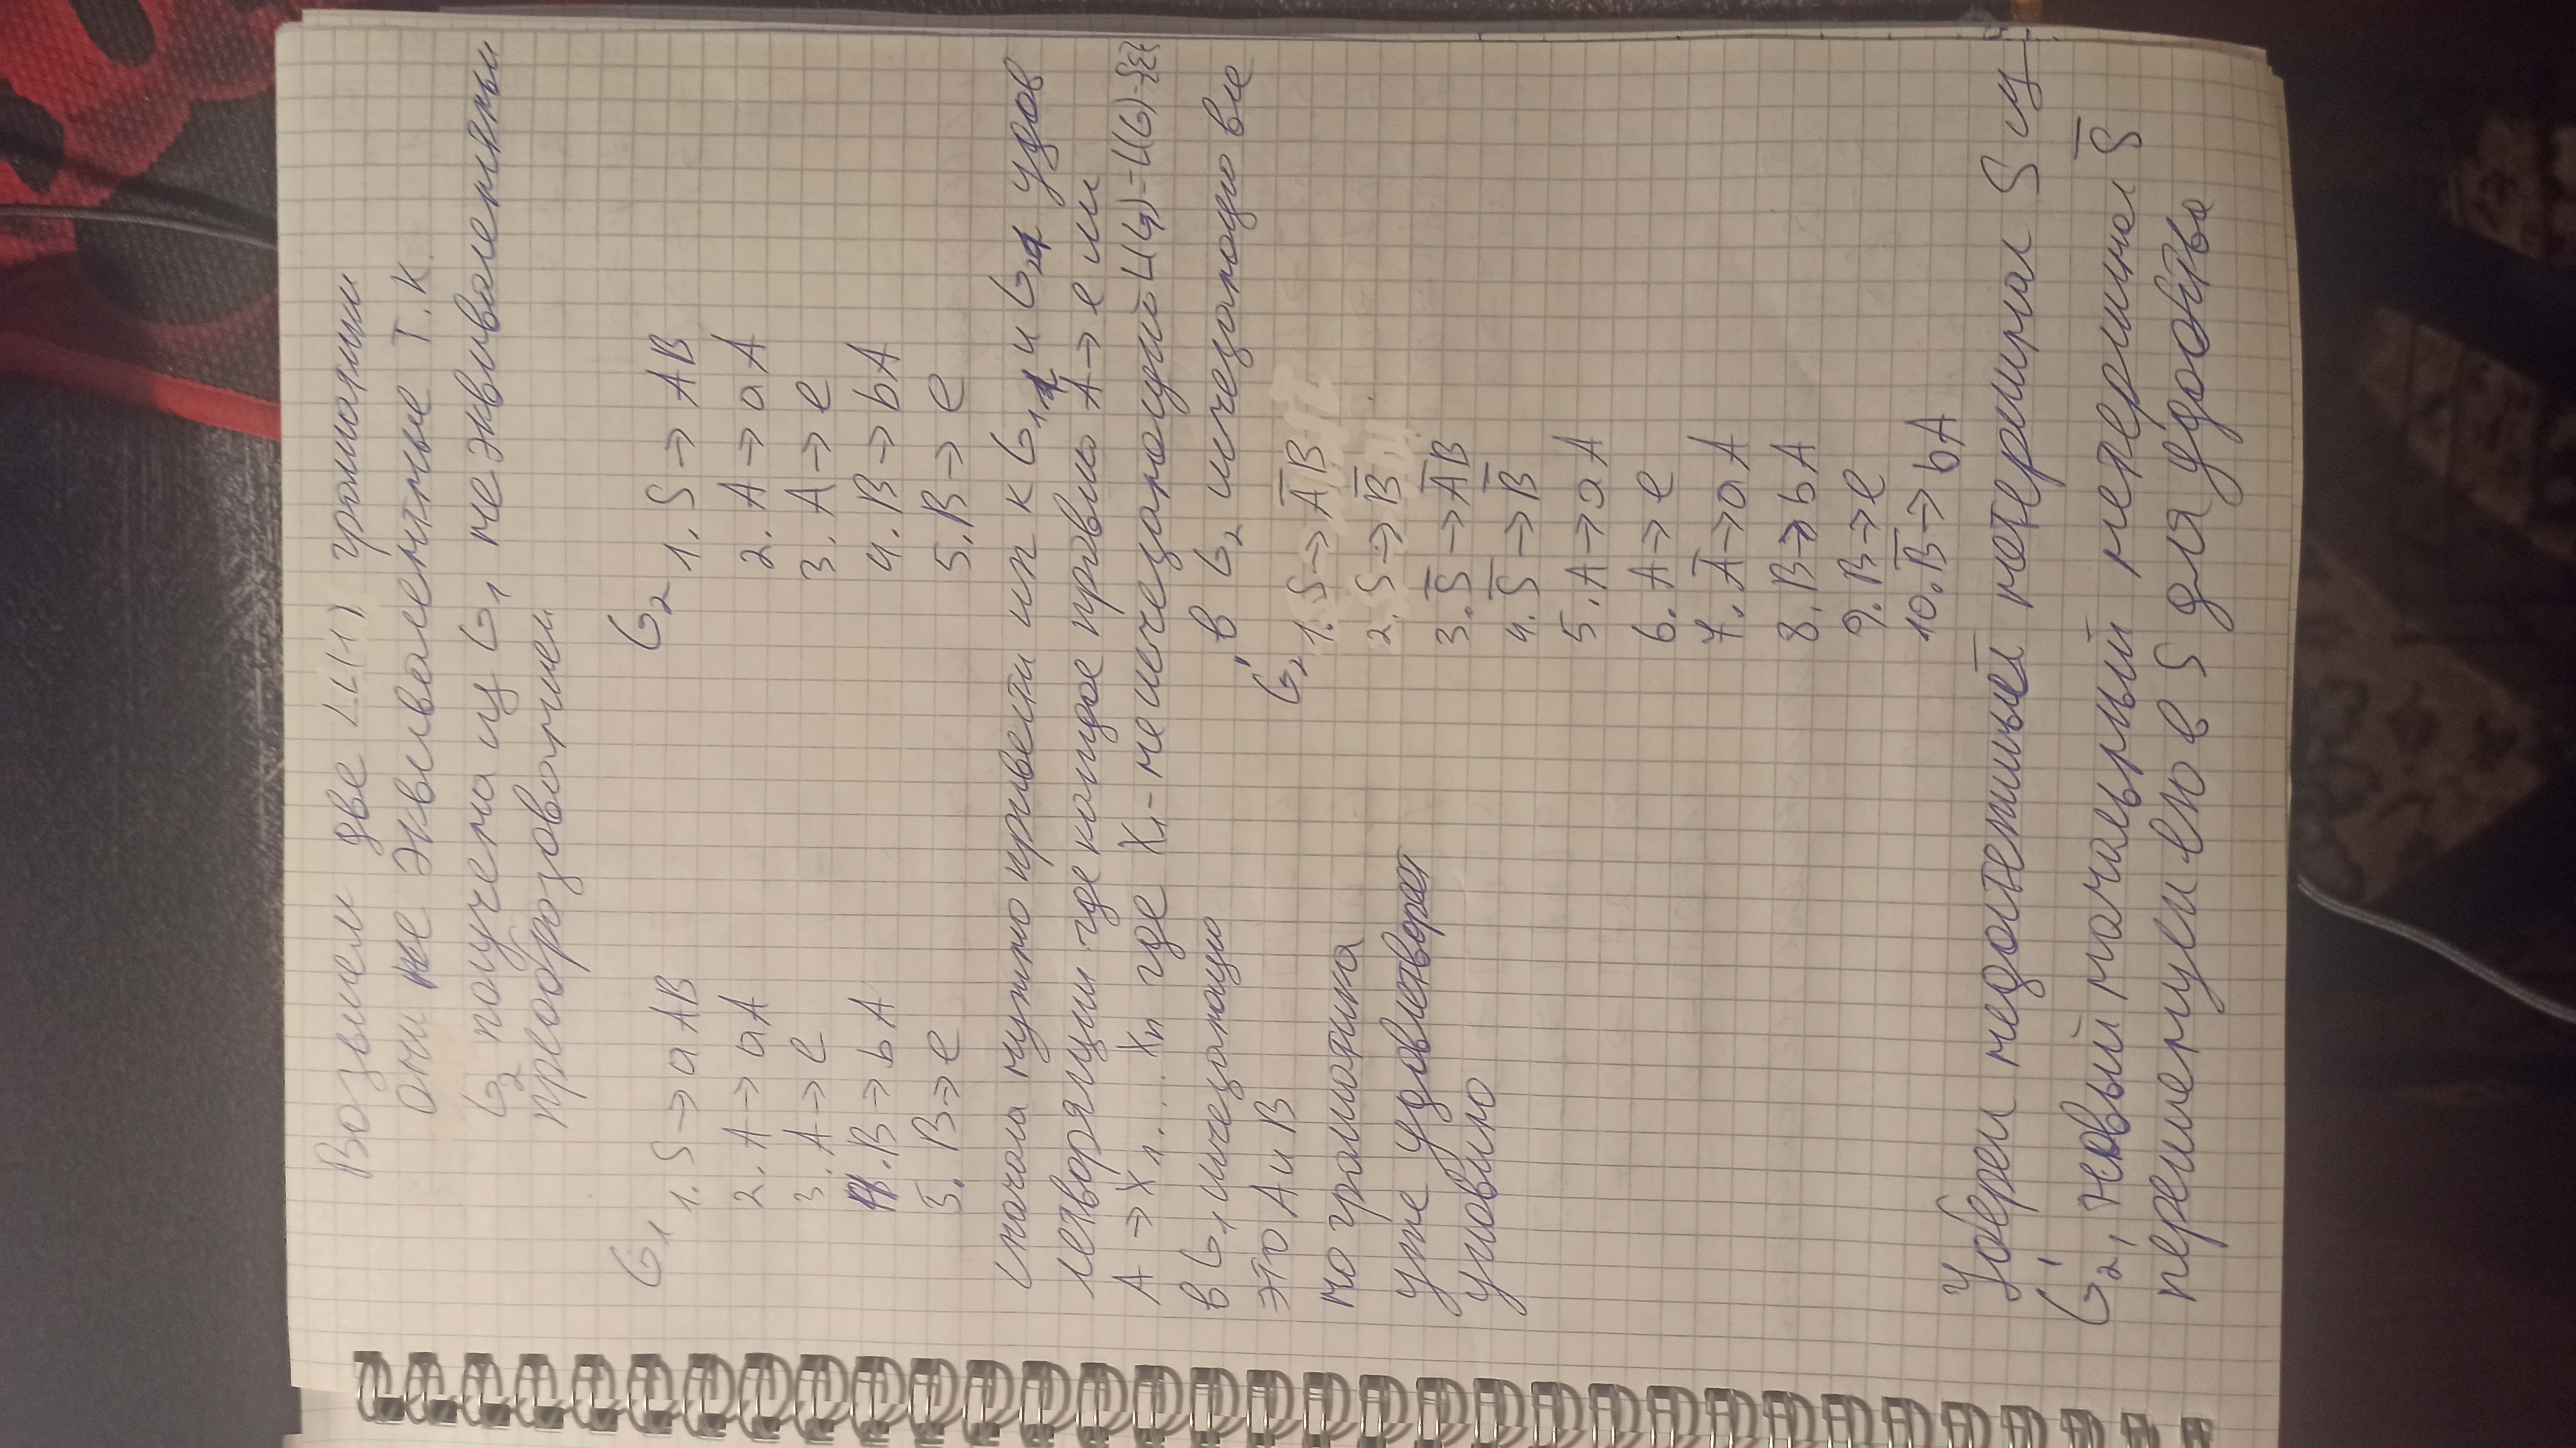 Возьмем две LL(1) граматики
они не эквивалентные т.к.
G₂ получена из G₁ неэквивалентным
преобразованием
G₁
1. S → aAB
2. A → aA
3. A → e
4. B → bA
5. B → e
G₂
1. S → AB
2. A → aA
3. A → e
4. B → bA
5. B → e
сначала нужно привести их к G₁₁ и G₂₁ удов
летворящим где каждое правило A → e или
A → X₁....Xₙ где X₁ - не исчезающий L(G₁) = L(G) - {ε}
в G₁ исчезающие
это A и B
но граматика
уже удовлетворяет
условию
в G₂ исчезающие все
G₂'
1. S → A̅B
2. S → B̅
3. S̅ → A̅B
4. S̅ → B̅
5. A → aA
6. A → e
7. A̅ → aA
8. B → bA
9. B → e
10. B̅ → bA
Уберем недостежимый нетерминал S из
G₂', новый начальный нетерминал S̅
переименуем его в S для удобства